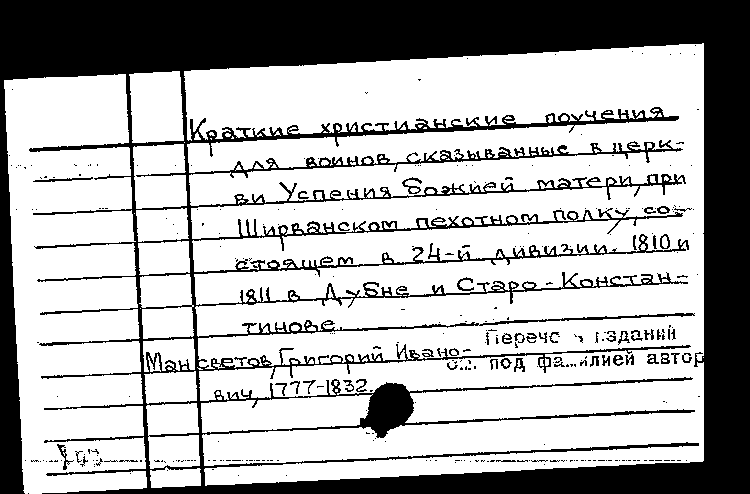 Краткие христианские поучения
для воинов, сказыванные в церк-
ви Успения Божией матери, при
Ширванском пехотном полку, со-
стоящем в 24-й дивизии. 1810 и
1811 в Дубне и Старо-Констан-
тинове.
Мансветов, Григорий Ивано-
вич, 1777-1832.
изданий
под фамилией автор